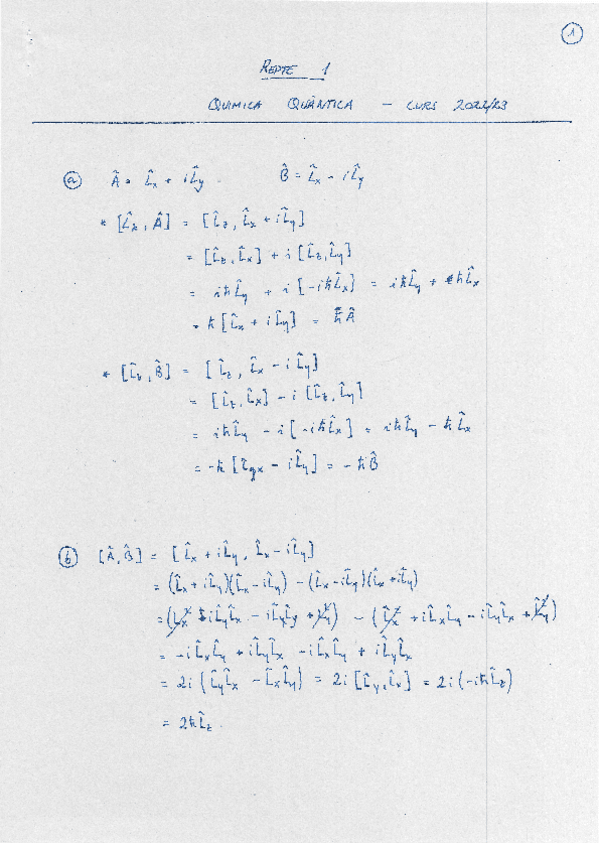 1
REPTE 1
QUÍMICA QUÀNTICA – CURS 2022/23
a) Â = L̂x + iL̂y. B̂ = L̂x – iL̂y
* [L̂z, Â] = [L̂z, L̂x + iL̂y]
= [L̂z, L̂x] + i[L̂z, L̂y]
= iħL̂y + i[-iħL̂x] = iħL̂y + ħL̂x
= ħ[L̂x + iL̂y] = ħÂ
* [L̂z, B̂] = [L̂z, L̂x – iL̂y]
= [L̂z, L̂x] – i[L̂z, L̂y]
= iħL̂y – i[-iħL̂x] = iħL̂y – ħL̂x
= -ħ[L̂x – iL̂y] = -ħB̂
b) [Â, B̂] = [L̂x + iL̂y, L̂x – iL̂y]
= (L̂x + iL̂y)(L̂x – iL̂y) – (L̂x – iL̂y)(L̂x + iL̂y)
= (L̂x² + iL̂yL̂x – iL̂xL̂y + L̂y²) – (L̂x² + iL̂xL̂y – iL̂yL̂x + L̂y²)
= -iL̂xL̂y + iL̂yL̂x – iL̂xL̂y + iL̂yL̂x
= 2i(L̂yL̂x – L̂xL̂y) = 2i[L̂y, L̂x] = 2i(-iħL̂z)
= 2ħL̂z.